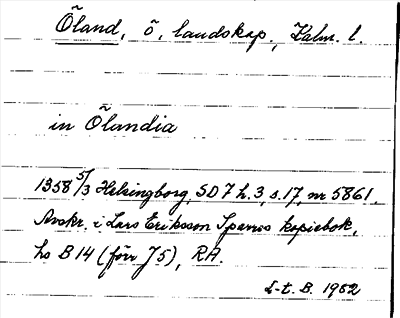 Öland, ö, landskap., Kalm. l.
in Ölandia
1358 5/3 Helsingborg, SD 7 h. 3, s. 17, nr 5861.
Avskr. i Lars Eriksson Sparres kopiebok,
hs B 14 (förr J 5), RA.
L-t. B. 1962